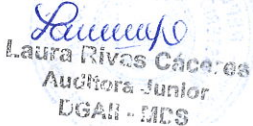 Laura Rivas Cáceres
Auditora Junior
DGAII - MDS